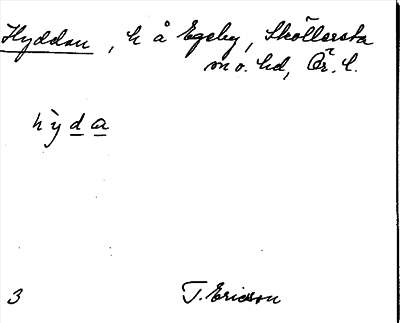 Hyddan, h å Egeby, Sköllersta
sn o. hd, Ör. l.
hỳda
3 T. Ericson